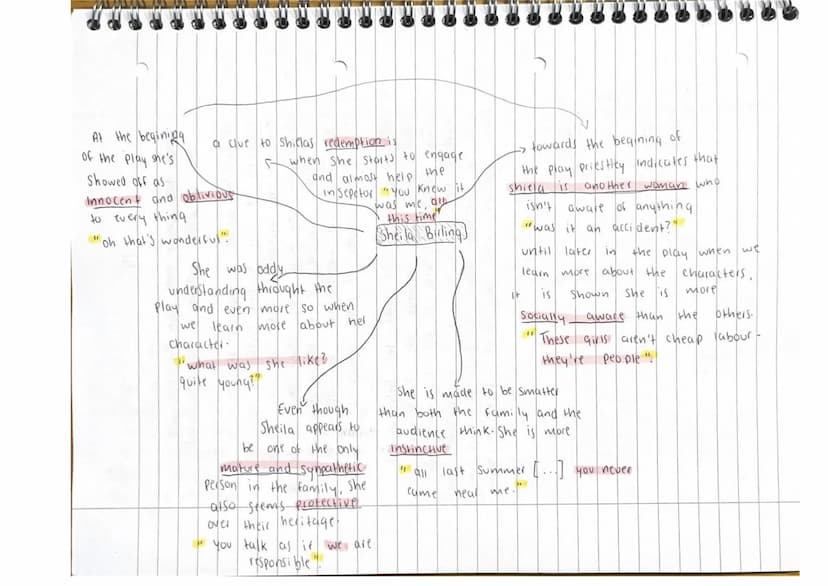 At the begining
of the play she's
showed off as
innocent and oblivious
to every thing
"oh that's wonderful".
a clue to Shielas redemption is
when she starts to engage
and almost help the
insepetor "you knew it
was me, all
this time"
towards the begining of
the play priestley indicates that
shiela is another woman who
isn't aware of anything
"was it an accident?"
until later in the play when we
learn more about the characters,
it is shown she is more
socially aware than the others.
"These girls aren't cheap labour-
they're people".
Sheila Birling
She was oddly
understanding throught the
play and even more so when
we learn more about her
character.
"what was she like?
quite young?"
Even though
Sheila appears to
be one of the only
mature and sympathetic
person in the family, she
also seems protective
over their heritage.
"you talk as if we are
responsible".
She is made to be smatter
than both the family and the
audience think. She is more
instinctive
"all last summer [...] you never
came near me."